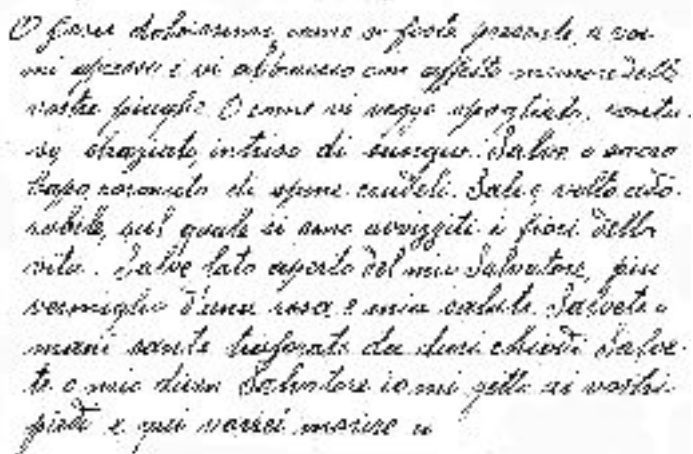 O Gesù dolcissimo, come se foste presente, a voi
mi appresso e vi abbraccio con affetto memore delle
vostre piaghe. O come vi veggo spogliato, contu-
so, straziato, intriso di sangue. Salve o sacro
capo coronato di spine crudeli. Salve, volto ado-
rabile, sul quale si sono avvizziti i fiori della
vita. Salve lato aperto del mio Salvatore, più
vermiglio d'una rosa e mia salute. Salvete o
mani sante traforate da duri chiodi. Salve-
te o mio divin Salvatore io mi getto ai vostri
piedi e qui vorrei morire